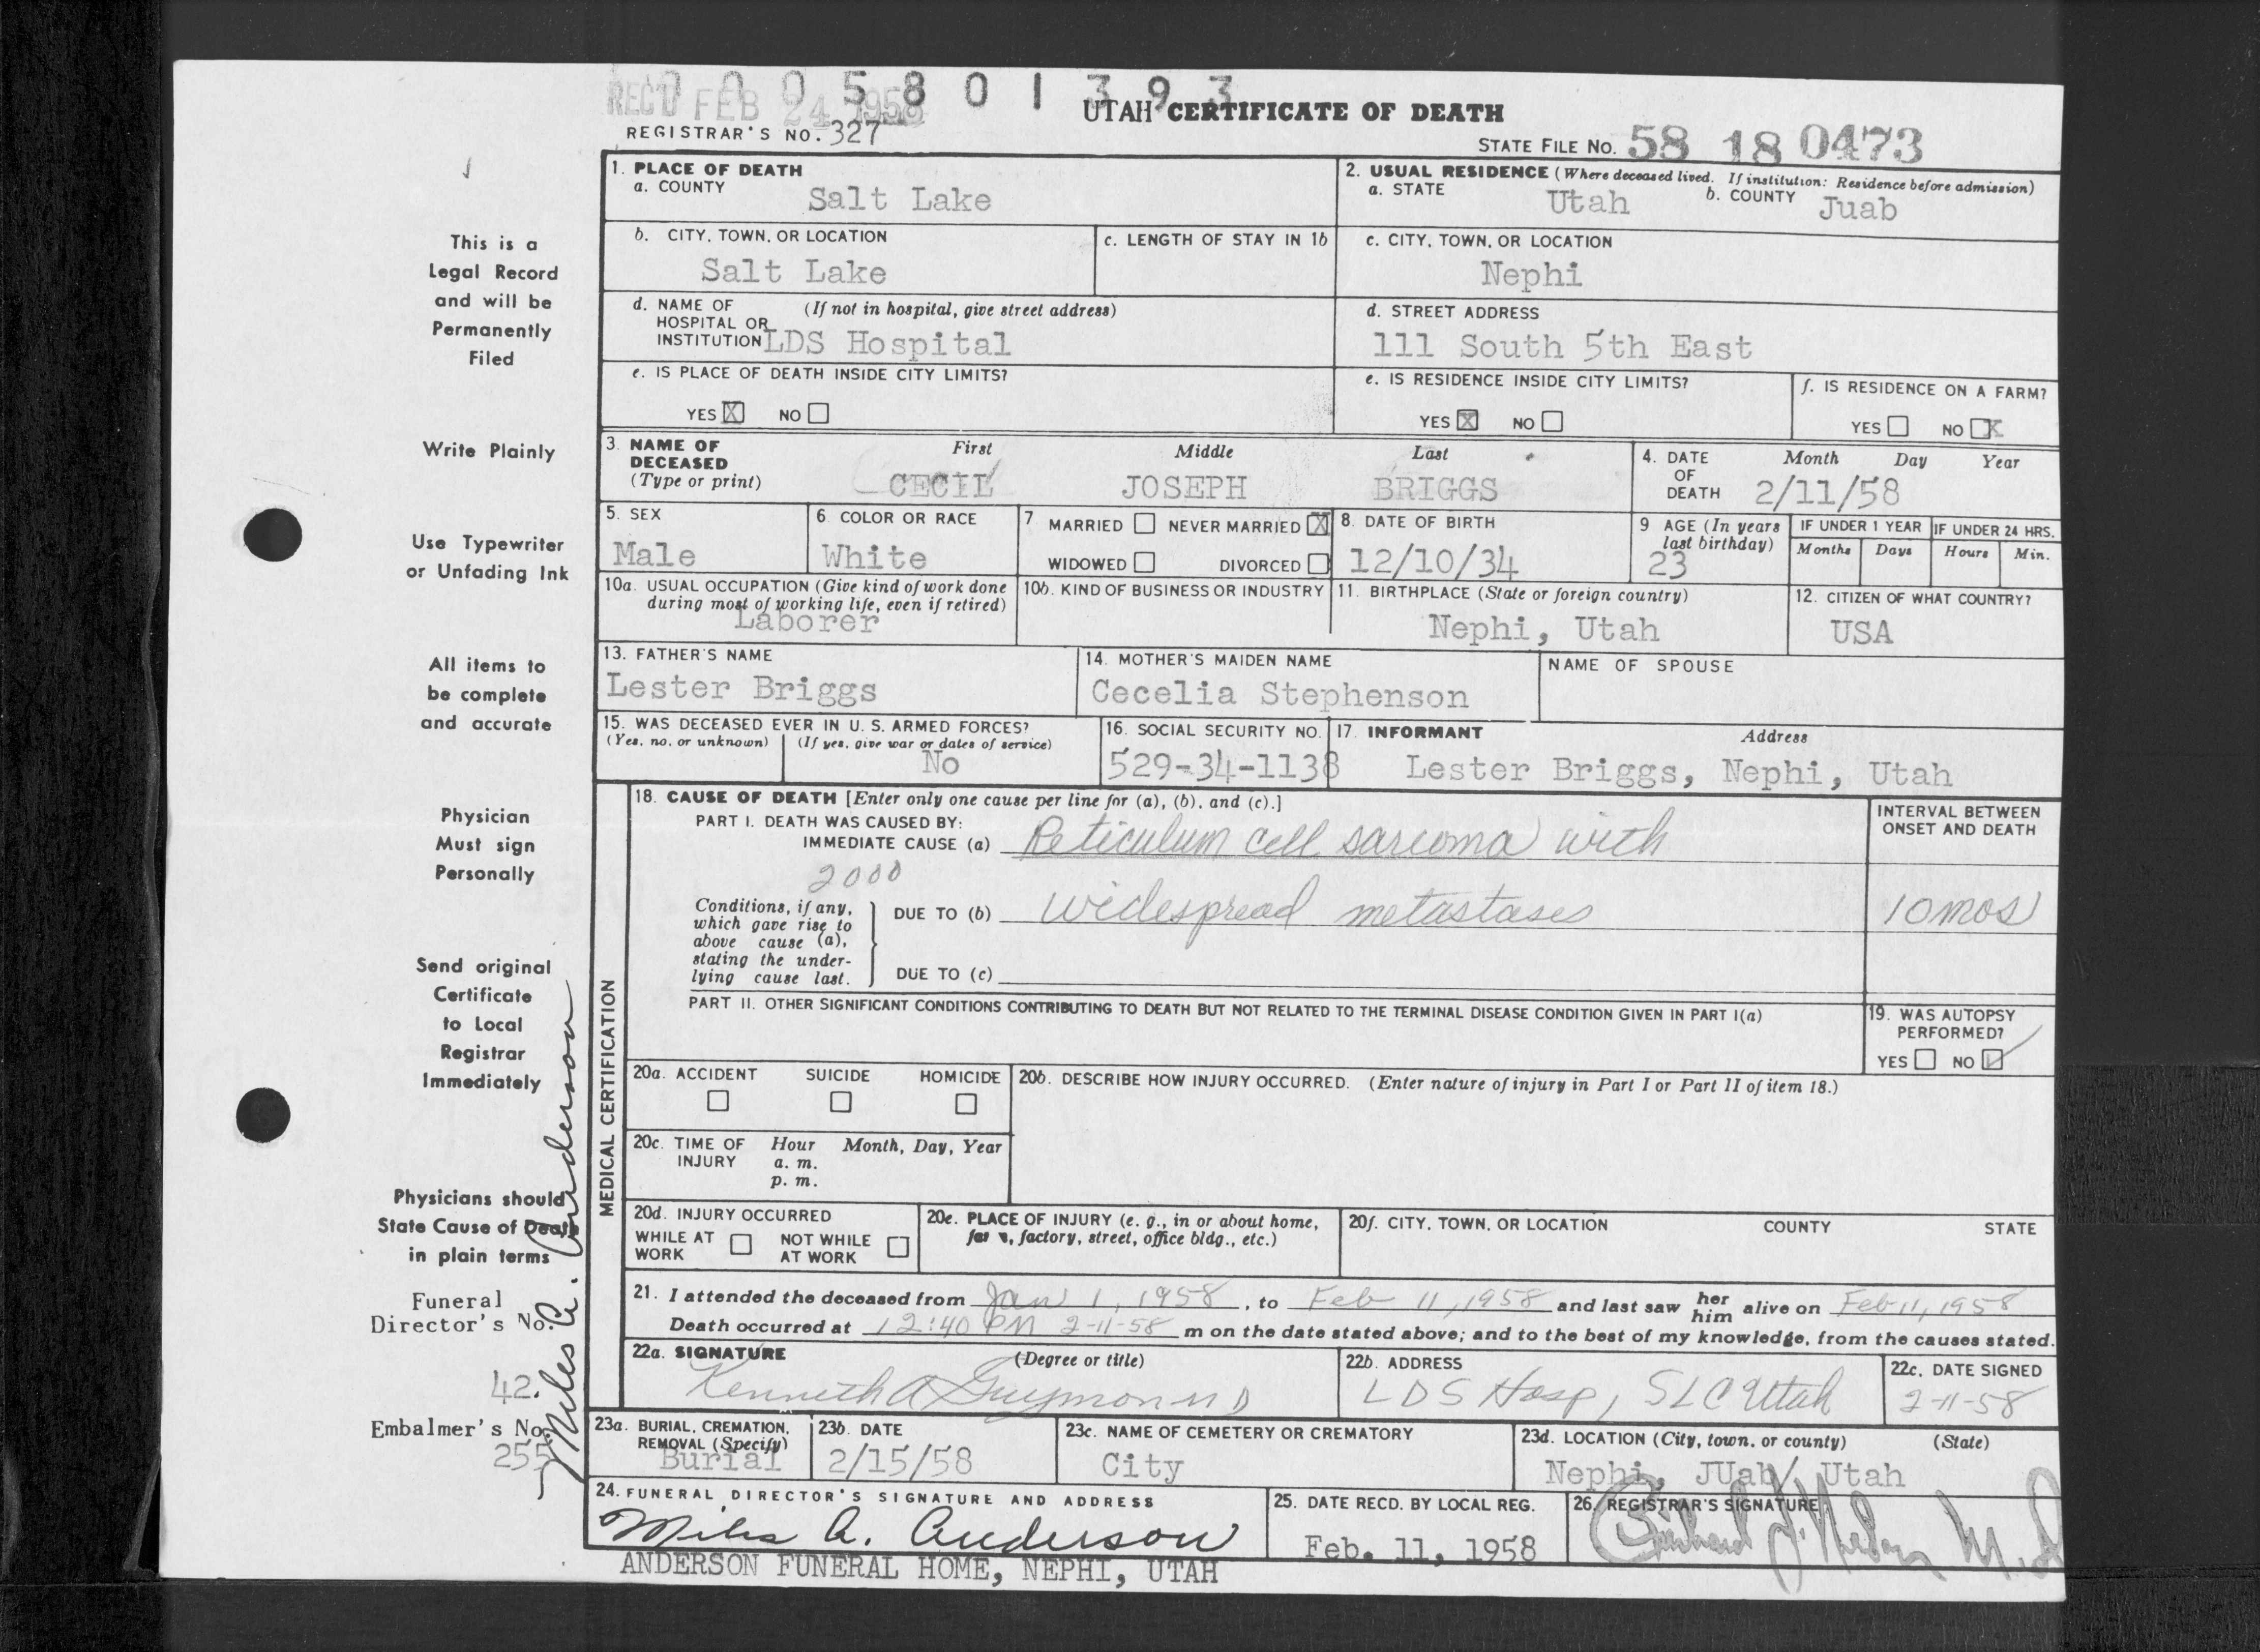 0 0 0 5 8 0 1 3 9 3
REC'D FEB 24 1958
UTAH CERTIFICATE OF DEATH
REGISTRAR'S NO. 327
STATE FILE NO. 58 18 0473
This is a
Legal Record
and will be
Permanently
Filed
Write Plainly
Use Typewriter
or Unfading Ink
All items to
be complete
and accurate
Physician
Must sign
Personally
Send original
Certificate
to Local
Registrar
Immediately
Physicians should
State Cause of Death
in plain terms
Funeral
Director's No.
42.
Embalmer's No.
255
Miles A. Anderson
1. PLACE OF DEATH
a. COUNTY
Salt Lake
2. USUAL RESIDENCE (Where deceased lived. If institution: Residence before admission)
a. STATE Utah b. COUNTY Juab
b. CITY, TOWN, OR LOCATION
Salt Lake
c. LENGTH OF STAY IN 1b
c. CITY, TOWN, OR LOCATION
Nephi
d. NAME OF (If not in hospital, give street address)
HOSPITAL OR
INSTITUTION LDS Hospital
d. STREET ADDRESS
111 South 5th East
e. IS PLACE OF DEATH INSIDE CITY LIMITS?
YES X NO
e. IS RESIDENCE INSIDE CITY LIMITS?
YES X NO
f. IS RESIDENCE ON A FARM?
YES NO X
3. NAME OF DECEASED (Type or print)
First Middle Last
CECIL JOSEPH BRIGGS
4. DATE OF DEATH Month Day Year
2/11/58
5. SEX
Male
6. COLOR OR RACE
White
7 MARRIED NEVER MARRIED X
WIDOWED DIVORCED
8. DATE OF BIRTH
12/10/34
9 AGE (In years last birthday)
23
IF UNDER 1 YEAR IF UNDER 24 HRS.
Months Days Hours Min.
10a. USUAL OCCUPATION (Give kind of work done
during most of working life, even if retired)
Laborer
10b. KIND OF BUSINESS OR INDUSTRY
11. BIRTHPLACE (State or foreign country)
Nephi, Utah
12. CITIZEN OF WHAT COUNTRY?
USA
13. FATHER'S NAME
Lester Briggs
14. MOTHER'S MAIDEN NAME
Cecelia Stephenson
NAME OF SPOUSE
15. WAS DECEASED EVER IN U. S. ARMED FORCES?
(Yes, no, or unknown) (If yes, give war or dates of service)
No
16. SOCIAL SECURITY NO.
529-34-1138
17. INFORMANT Address
Lester Briggs, Nephi, Utah
MEDICAL CERTIFICATION
18. CAUSE OF DEATH [Enter only one cause per line for (a), (b), and (c).]
PART I. DEATH WAS CAUSED BY:
IMMEDIATE CAUSE (a) Reticulum cell sarcoma with
2000
Conditions, if any,
which gave rise to
above cause (a),
stating the under-
lying cause last.
DUE TO (b) widespread metastases
DUE TO (c)
INTERVAL BETWEEN
ONSET AND DEATH
10 mos
PART II. OTHER SIGNIFICANT CONDITIONS CONTRIBUTING TO DEATH BUT NOT RELATED TO THE TERMINAL DISEASE CONDITION GIVEN IN PART I(a)
19. WAS AUTOPSY
PERFORMED?
YES NO ✓
20a. ACCIDENT SUICIDE HOMICIDE
20b. DESCRIBE HOW INJURY OCCURRED. (Enter nature of injury in Part I or Part II of item 18.)
20c. TIME OF INJURY Hour Month, Day, Year
a. m.
p. m.
20d. INJURY OCCURRED
WHILE AT WORK NOT WHILE AT WORK
20e. PLACE OF INJURY (e. g., in or about home,
farm, factory, street, office bldg., etc.)
20f. CITY, TOWN, OR LOCATION COUNTY STATE
21. I attended the deceased from Jan 1, 1958, to Feb 11, 1958 and last saw her him alive on Feb 11, 1958
Death occurred at 12:40 PM 2-11-58 m on the date stated above; and to the best of my knowledge, from the causes stated.
22a. SIGNATURE (Degree or title)
Kenneth A Guymon MD
22b. ADDRESS
LDS Hosp, SLC Utah
22c. DATE SIGNED
2-11-58
23a. BURIAL, CREMATION,
REMOVAL (Specify)
Burial
23b. DATE
2/15/58
23c. NAME OF CEMETERY OR CREMATORY
City
23d. LOCATION (City, town, or county) (State)
Nephi, JUab/ Utah
24. FUNERAL DIRECTOR'S SIGNATURE AND ADDRESS
Miles A. Anderson
ANDERSON FUNERAL HOME, NEPHI, UTAH
25. DATE RECD. BY LOCAL REG.
Feb. 11, 1958
26. REGISTRAR'S SIGNATURE
M.D.